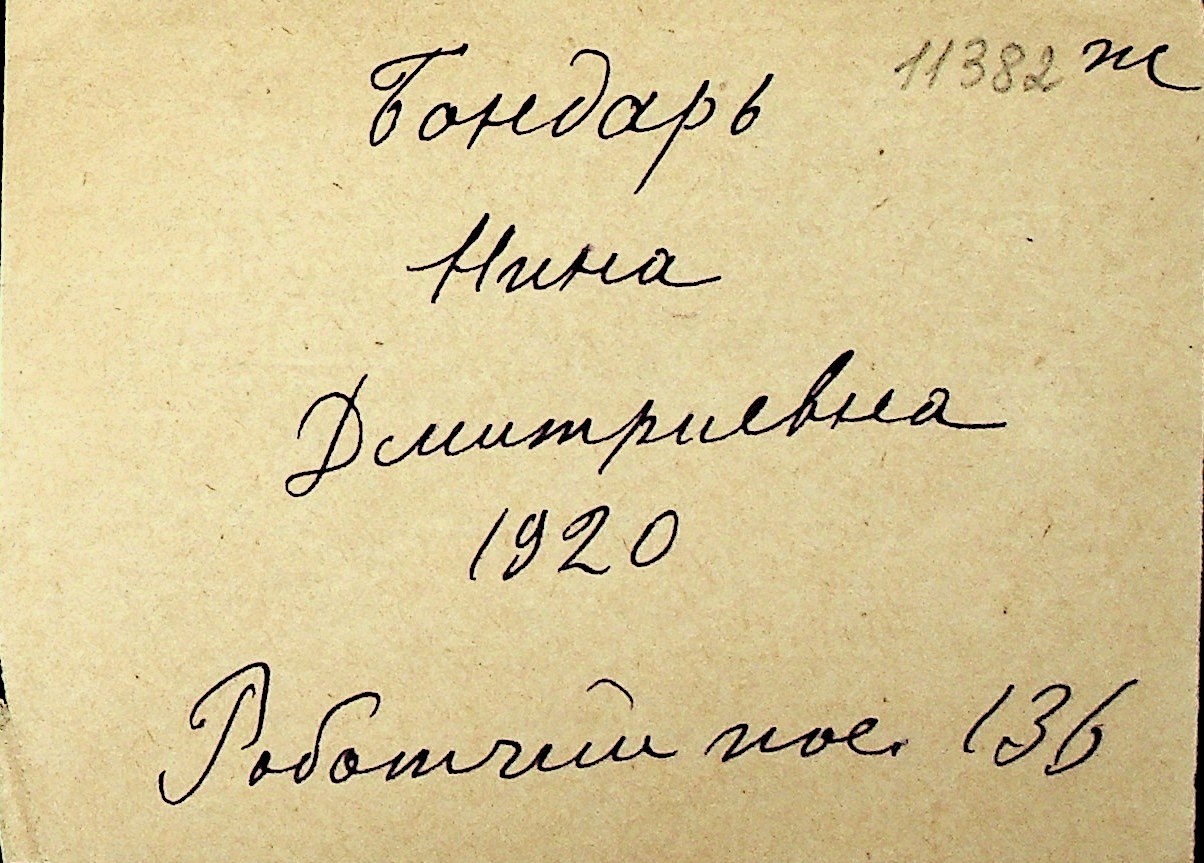 11382 ж
Бондарь
Нина
Дмитриевна
1920
Роботчий пос. 136